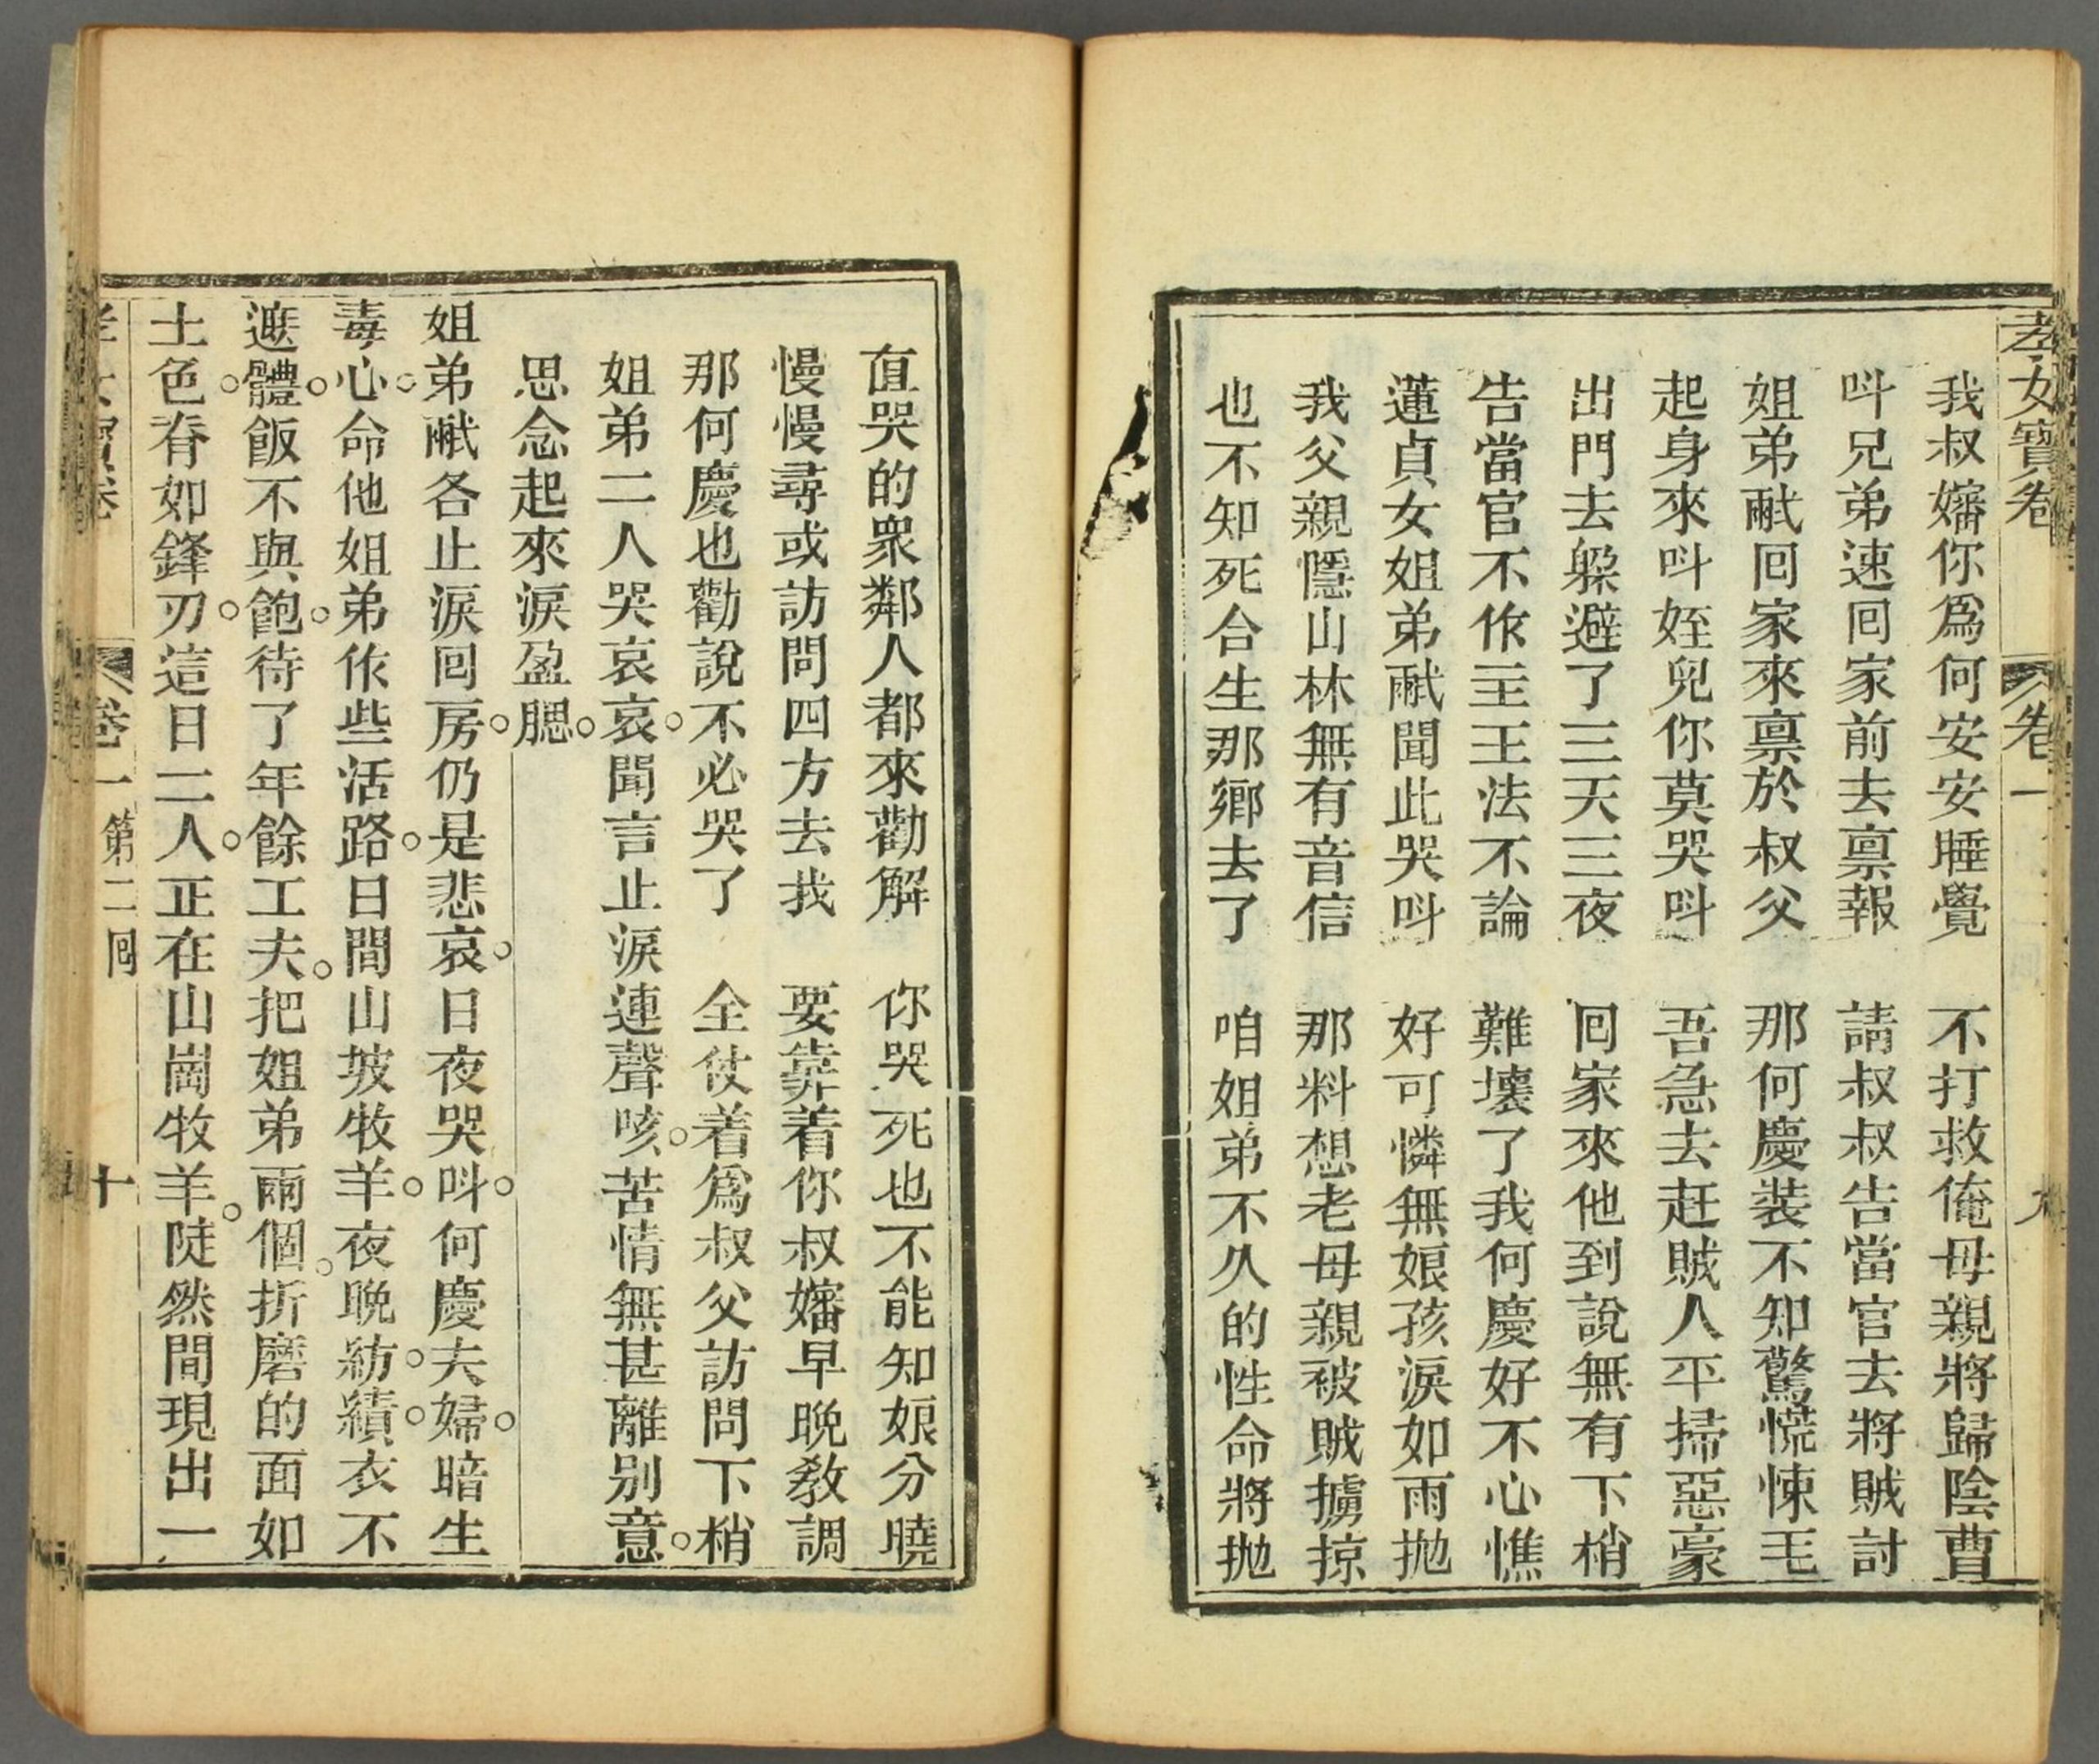 孝女寶卷 卷一 九
我叔嬸你爲何安安睡覺 不打救俺母親將歸陰曹
呌兄弟速囘家前去禀報 請叔叔告當官去將賊討
姐弟䎱囘家來禀於叔父 那何慶裝不知驚慌悚毛
起身來呌姪兒你莫哭呌 吾急去赶賊人平掃惡豪
出門去躱避了三天三夜 囘家來他到說無有下梢
告當官不作主王法不論 難壞了我何慶好不心憔
蓮貞女姐弟䎱聞此哭呌 好可憐無娘孩淚如雨抛
我父親隱山林無有音信 那料想老母親被賊擄掠
也不知死合生那鄉去了 咱姐弟不久的性命將抛
直哭的衆鄰人都來勸解 你哭死也不能知娘分曉
慢慢尋或訪問四方去找 要靠着你叔嬸早晚敎調
那何慶也勸說不必哭了 全仗着爲叔父訪問下梢
姐弟二人哭哀哀。聞言止淚連聲咳。苦情無甚離别意。
思念起來淚盈腮。
姐弟䎱各止淚囘房。仍是悲哀。日夜哭呌。何慶夫婦。暗生
毒心。命他姐弟作些活路。日間山坡牧羊。夜晚紡。績。衣不
遮。體飯不與飽。待了年餘工夫。把姐弟兩個。折磨的面如
土色。脊如鋒刃。這日二人。正在山崗牧羊。陡然間現出一
孝女寶卷 卷一 第二囘 十